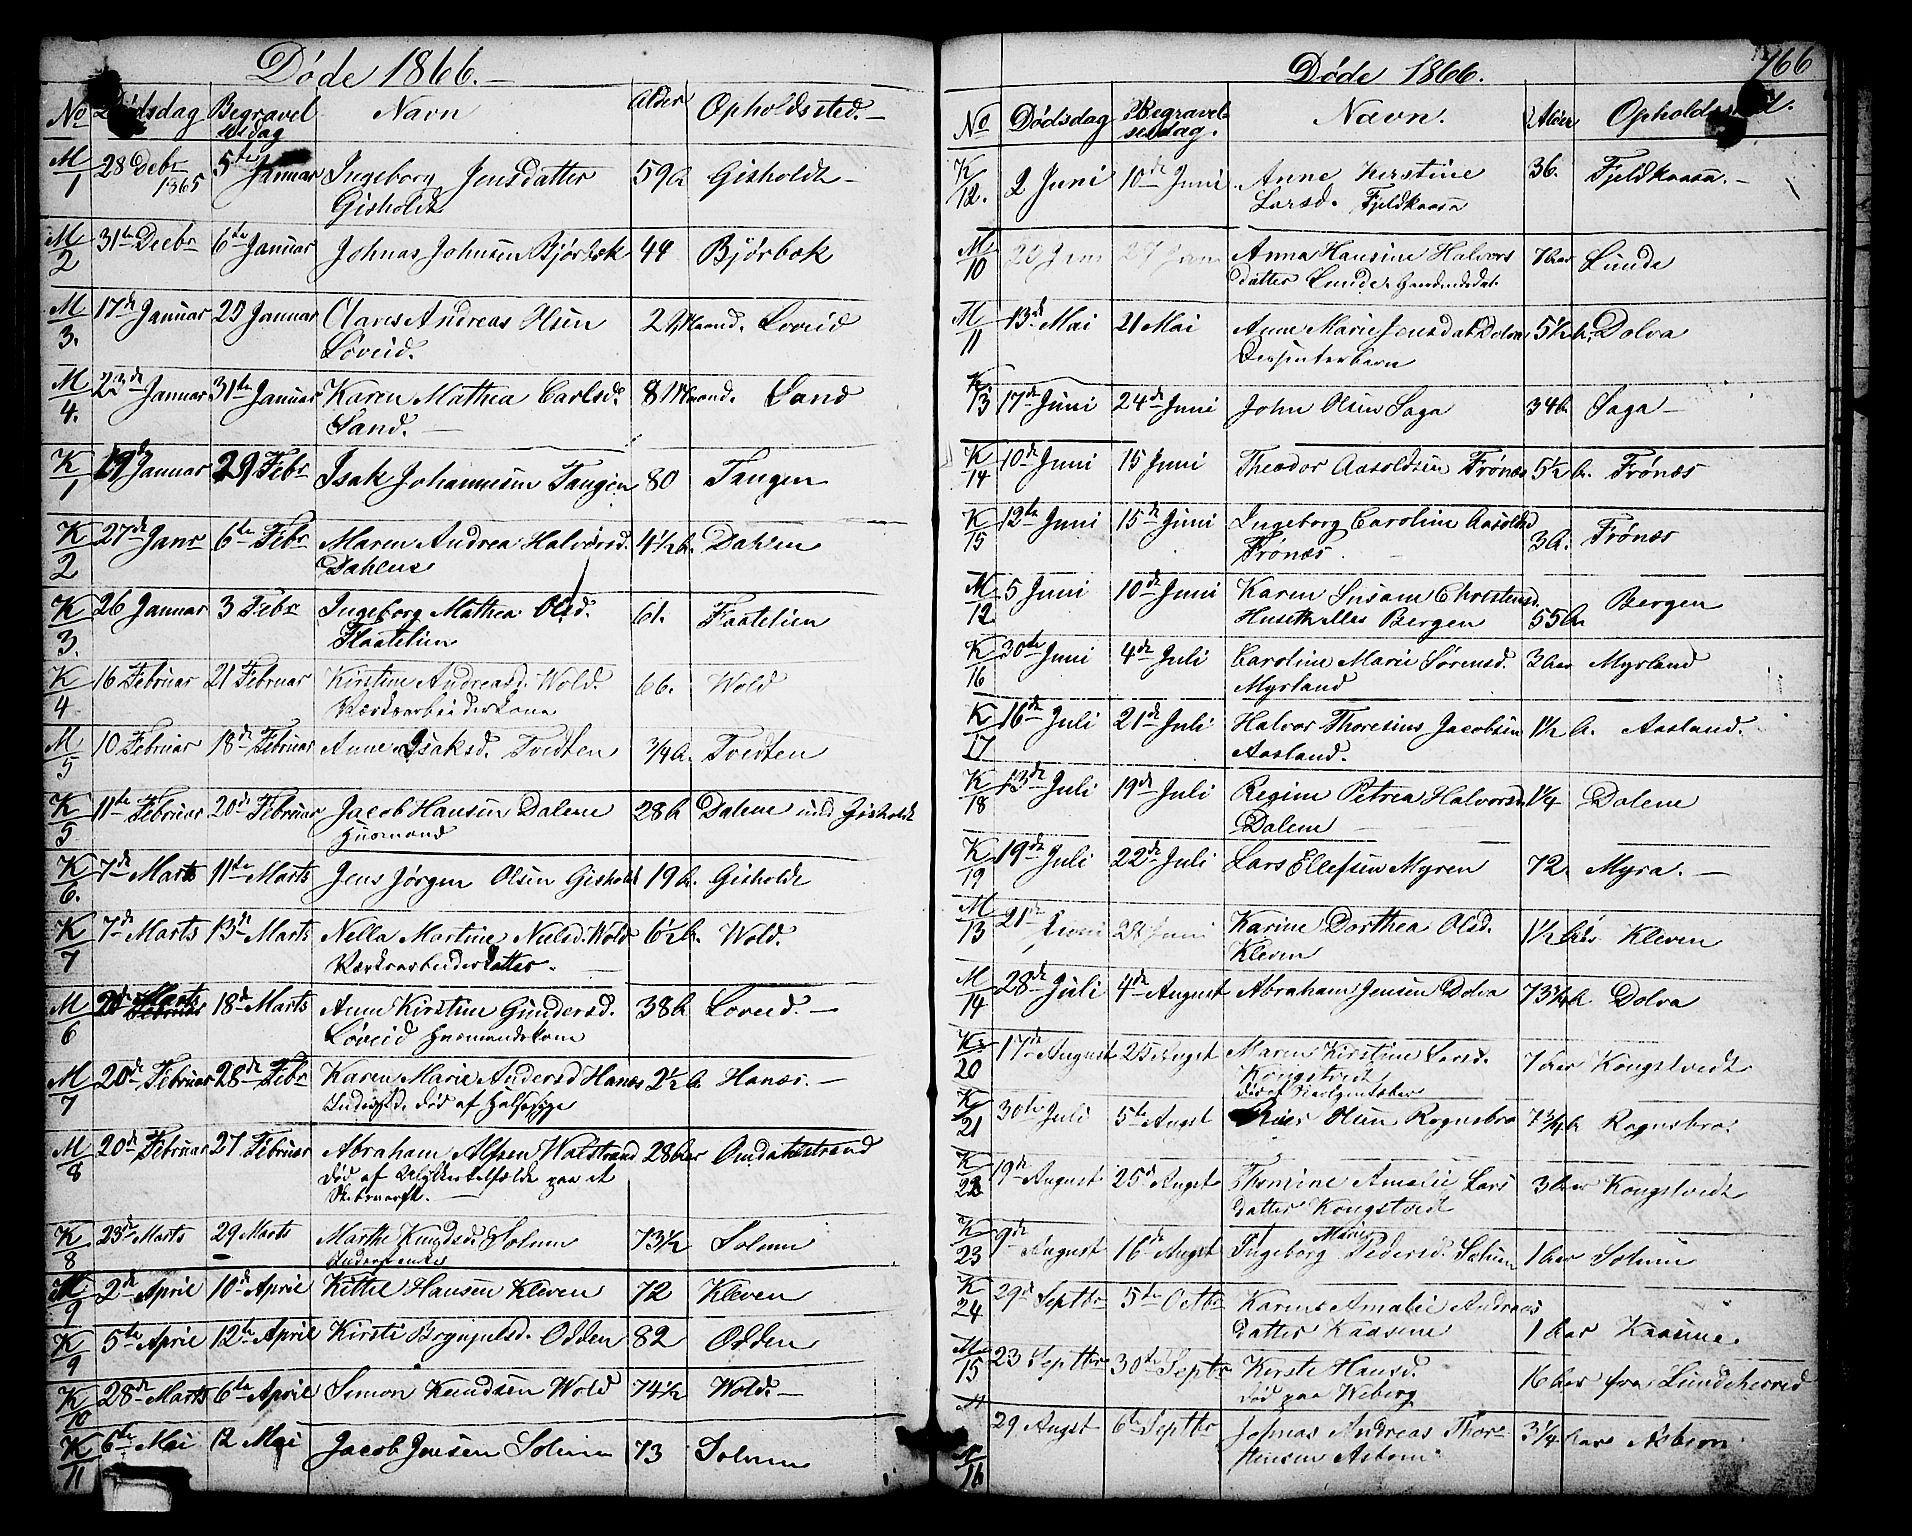 Døde 1866.
No Dødsdag Begravelsesdag Navn Alder Opholdssted.
M/1 28 Debr 1865 5te Januar Ingeborg Jensdatter 59 A Gisholdt
Gisholdt
M/2 31te Decbr 6te Januar Johnas Johnsen Bjørbæk 44 Bjørbæk
M/3. 17de Januar 25 Januar Claves Andreas Olsen 2 Maand. Løveid
Løveid.
M/4. 23de Januar 31te Januar Karen Mathea Carlsd. 8 Maand. Sand
Sand.
K/1 19de Januar 29 Febr Isak Johannesen Tangen 80 Tangen
K/2 27de Janr 6te Febr Maren Andrea Halvorsd. 4 1/2 A. Dahlen
Dahlens
K/3. 26 Januar 3 Febr Ingeborg Mathea Olsd. 61. Flaatelien
Flaatelien
K/4 16 Februar 21 Februar Kirstine Andreasd. Wold. 66. Wold
Værksarbeiderkone
M/5 10 Februar 18de Februar Anne Isaksd. Tvedten 3/4 A. Tvedten
K/5 11te Februar 20de Februar Jacob Hansen Dalene 28 A Dalene und Gisholdt
Husmand
K/6. 7de Marts 11te Marts Jens Jørgen Olsen Gisholdt 19 A. Gisholdt
K/7 7de Marts 13de Marts Nella Martine Nielsd. Wold 6 1/2 A. Wold.
Værksarbeiderdatter.
M/6 2de Marts 18de Marts Anne Kirstine Gundersd. 38 A Løveid.
Løveid Husmandskone
M/7 20de Februar 28de Febr Karen Marie Andersd Hanæs 2 1/2 A. Hanæs.
død af Halsesyge
M/8 20de Februar 27 Februar Abraham Alfsen Walstrand 28 Aar Omdalsstrand
død af Ulykkestilfælde paa et
K/8 23de Marts 29 Marts Marthe Knudsd. Solum 73 1/2 Solum
M/9 2de April 10de April Kittil Hansen Kleven 72 Kleven
K/9 5te April 12te April Kirsti Brynjulsd. Odden 82 Odden
K/10 28de Marts 6te April Simon Knudsen Wold 74 1/2 Wold.
K/11 6te Mai 12 Mai Jacob Jensen Solum 73 Solum
Døde 1866. 166
No Dødsdag Begravelsesdag. Navn. Alder
K/12. 2 Juni 10de Juni Anne Kirstine 36. Fjeldkaasa.
Larsd. Fjeldkaasa
M/10 Anna Hansine Halvors 7 Aar Lunde
datter Lunde
M/11 13de Mai 21 Mai Anne Marie Jensdat Dolva 5 1/2 A. Dolva
K/13 17de Juni 24de Juni John Olsen Saga 34 A. Saga
K/14 10de Juni 15 Juni Theodor Aasoldsen Frønæs 5 1/2 A. Frønæs
K/15 12te Juni 15de Juni Ingeborg Caroline Aasoldsd 3 A. Frønæs
Frønæs
M/12 5 Juni 10de Juni Karen Susane Christensd. 55 A Bergen
Bergen
K/16 30te Juni 4de Juli Caroline Marie Sørensd. 3 Aar Myrland
Myrland
K/17 16de Juli 21de Juli Halvor Thoresius Jacobsen 1 1/2 A. Aasland.
Aasland.
K/18 13de Juli 19de Juli Regine Petrea Halvorsd 1 1/4 Dalene
Dalene
K/19 19de Juli 22de Juli Lars Ellefsen Myren 72. Myra.
M/13 21de Juni Karine Dorthea Olsd. 1 1/2 Aar Kleven
Kleven
M/14 28de Juli 4de August Abraham Jensen Dolva 73 3/4 A Dolva
K/20 17de August 25 Augst Maren Kirstine Larsd. 7 Aar Kongstvedt
Kongstvedt
K/21 30te Juli 5te Augst Olsen Rognsbro 7 3/4 A Rognsbro.
K/22 19de August 25de Augst Thomine Amalie Lars 3 Aar Kongstvedt
datter Kongstvedt
K/23 9de August 16de Augst Ingeborg Marie Pedersd. Solum 1 Aar Solum
K/24 29de Septbr 5te Octbr Karine Amalie Andreas
datter Kaasene 1 Aar Kaasene.
M/15 23 Septbr 30te Septbr Kirste Hansd. 16 Aar fra Lundeherred
død paa Wiberg
M/16 29 Augst 6te Septbr Johnas Andreas Thor- 3 1/4 Aar
stensen